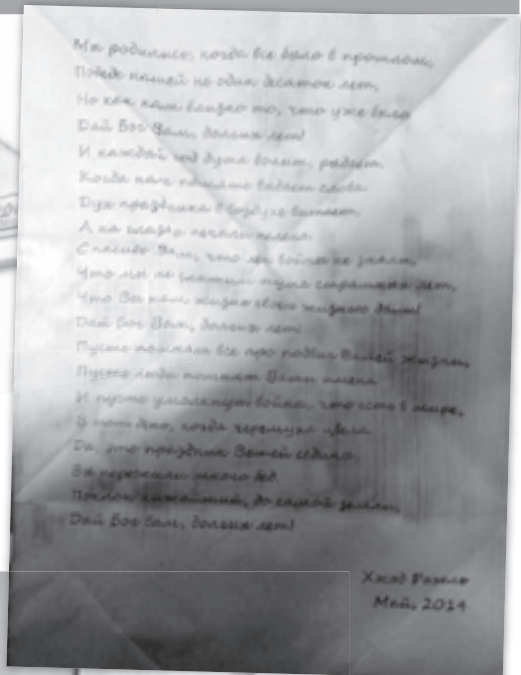 Мы родились, когда все было в прошлом,
Победе нашей не один десяток лет,
Но как нам близко то, что уже было
Дай Бог Вам, долгих лет!
И каждый год душа болит, рыдает,
Когда нам память выдает слова
Дух праздника в воздухе витает,
А на глазах печали пелена
Спасибо Вам, что мы войны не знали,
Что мы не слышим шума страшных лет,
Что Вы нам жизнь своею жизнью дали!
Дай Бог Вам, долгих лет!
Пусть помнят все про подвиг Вашей жизни,
Пусть люди помнят Ваши имена
И пусть умолкнут войны, что есть в мире,
В тот день, когда черемуха цвела
Да, это праздник Вашей седины,
Вы пережили много бед
Поклон нижайший, до самой земли,
Дай Бог Вам, долгих лет!
Рахель
Май, 2014